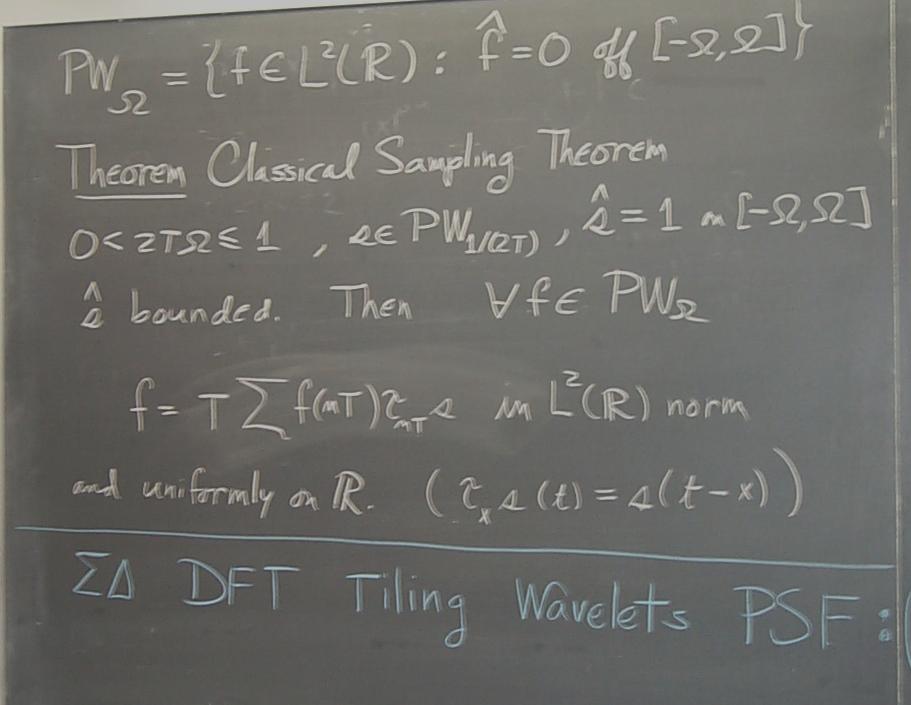 PW_Ω = {f ∈ L²(ℝ) : f̂ = 0 off [-Ω,Ω]}
Theorem Classical Sampling Theorem
0 < 2TΩ ≤ 1 , s ∈ PW_{1/(2T)} , ŝ = 1 on [-Ω,Ω]
ŝ bounded. Then ∀ f ∈ PW_Ω
f = T ∑ f(nT) τ_{nT} s in L²(ℝ) norm
and uniformly on ℝ. (τ_x s(t) = s(t-x))
ΣΔ DFT Tiling Wavelets PSF: